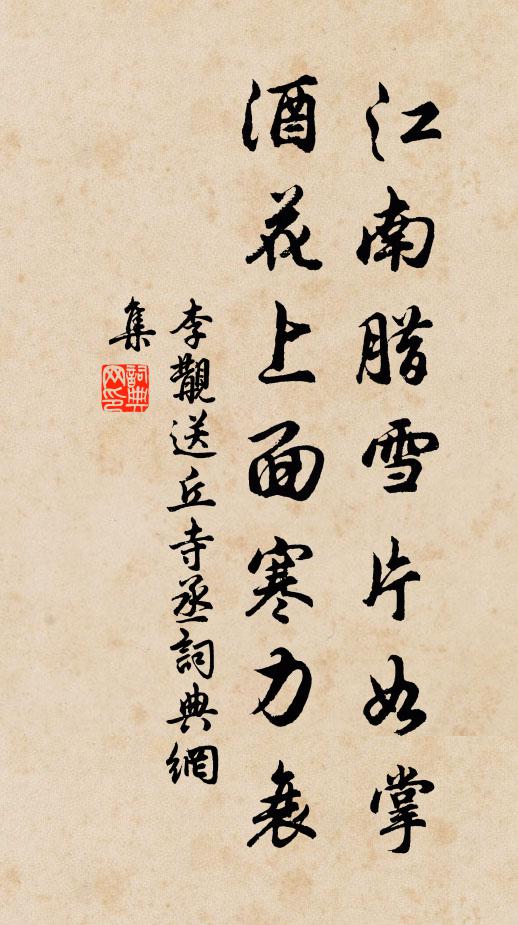 江南腊雪片如掌
酒花上面寒力衰
李覯送丘寺丞詞典網
集
詞典
网印